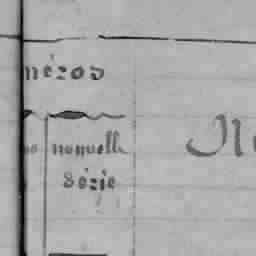 néros
nouvelle
Série